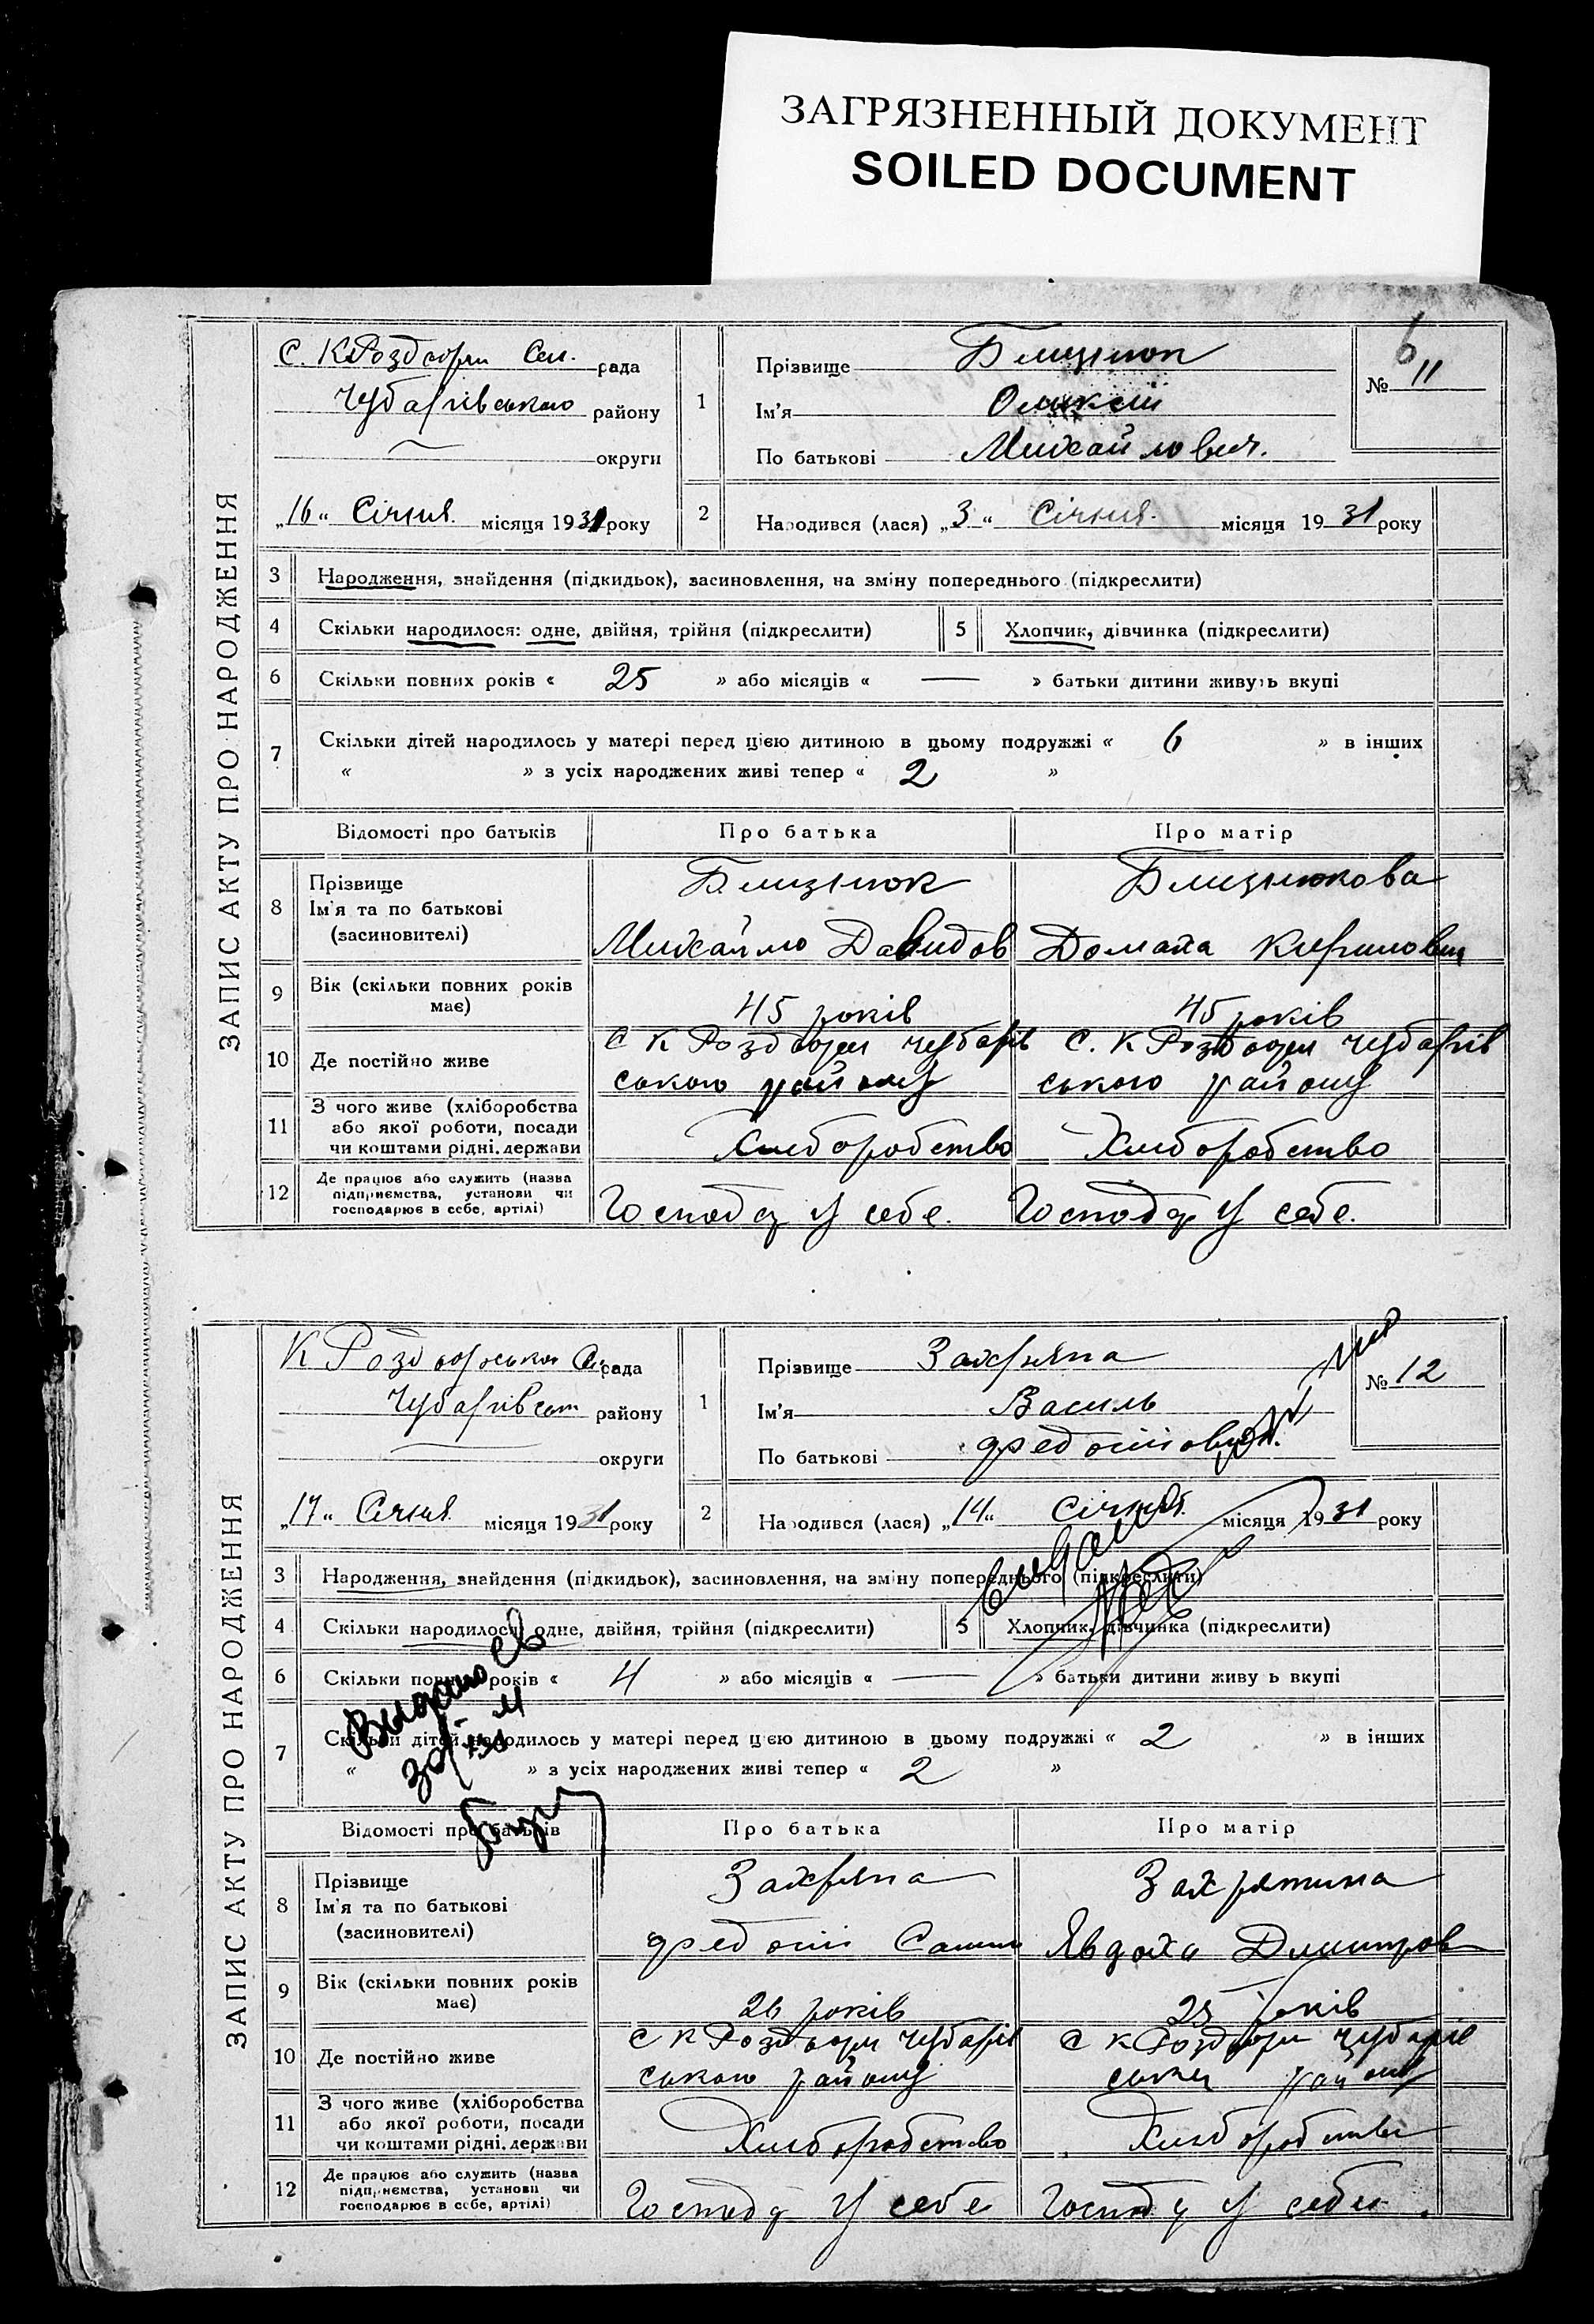 ЗАГРЯЗНЕННЫЙ ДОКУМЕНТ
SOILED DOCUMENT
ЗАПИС АКТУ ПРО НАРОДЖЕННЯ
С. К Роздори Сел. рада
Чубарівського району
округи
„16“ Січня місяця 1931 року
1
Прізвище Близнюк
Ім'я Олексій
По батькові Михайлович.
6
№ 11
2
Народився (лася) „3“ Січня місяця 1931 року
3 Народження, знайдення (підкидьок), засиновлення, на зміну попереднього (підкреслити)
4 Скільки народилося: одне, двійня, трійня (підкреслити)
5 Хлопчик, дівчинка (підкреслити)
6 Скільки повних років « 25 » або місяців « — » батьки дитини живуть вкупі
7 Скільки дітей народилось у матері перед цією дитиною в цьому подружжі « 6 » в інших
« » з усіх народжених живі тепер « 2 »
Відомості про батьків Про батька Про матір
8 Прізвище
Ім'я та по батькові
(засиновителі)
Близнюк
Михайло Давидов
Близнюкова
Домаха Кирилов
9 Вік (скільки повних років має)
45 років
45 років
10 Де постійно живе
С К Роздори Чубарів
ського району
С. К Роздори Чубарів
ського району
11 З чого живе (хліборобства
або якої роботи, посади
чи коштами рідні, держави
Хліборобство
Хліборобство
12 Де працює або служить (назва
підприємства, установи чи
господарює в себе, артілі)
Господ у себе.
Господ у себе.
ЗАПИС АКТУ ПРО НАРОДЖЕННЯ
К Роздорська рада
Чубарівськ району
округи
„17“ Січня місяця 1931 року
1
Прізвище Захряпа
Ім'я Василь
По батькові Федосійович.
№ 12
2
Народився (лася) „14“ Січня місяця 1931 року
3 Народження, знайдення (підкидьок), засиновлення, на зміну попереднього (підкреслити)
4 Скільки народилося: одне, двійня, трійня (підкреслити)
5 Хлопчик, дівчинка (підкреслити)
6 Скільки повних років « 4 » або місяців « — » батьки дитини живу ь вкупі
7 Скільки дітей народилось у матері перед цією дитиною в цьому подружжі « 2 » в інших
« » з усіх народжених живі тепер « 2 »
Відомості про батьків Про батька Про матір
8 Прізвище
Ім'я та по батькові
(засиновителі)
Захряпа
Федосій
Захряпина
Явдоха Дмитров
9 Вік (скільки повних років має)
26 років
25 років
10 Де постійно живе
С К Роздори Чубарів
ського району
С К Роздори Чубарів
району
11 З чого живе (хліборобства
або якої роботи, посади
чи коштами рідні, держави
Хліборобство
Хліборобство
12 Де працює або служить (назва
підприємства, установи чи
господарює в себе, артілі)
Господ у себе
Господ у себе